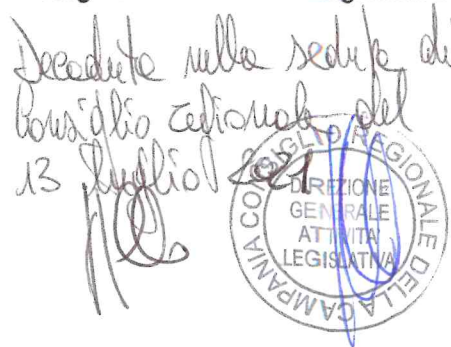 Decaduta nella seduta di
Consiglio regionale del
13 luglio 2021
CONSIGLIO REGIONALE DELLA CAMPANIA
DIREZIONE
GENERALE
ATTIVITA'
LEGISLATIVA